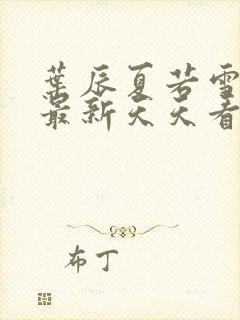 葉辰夏若雪
最新天天看
布丁